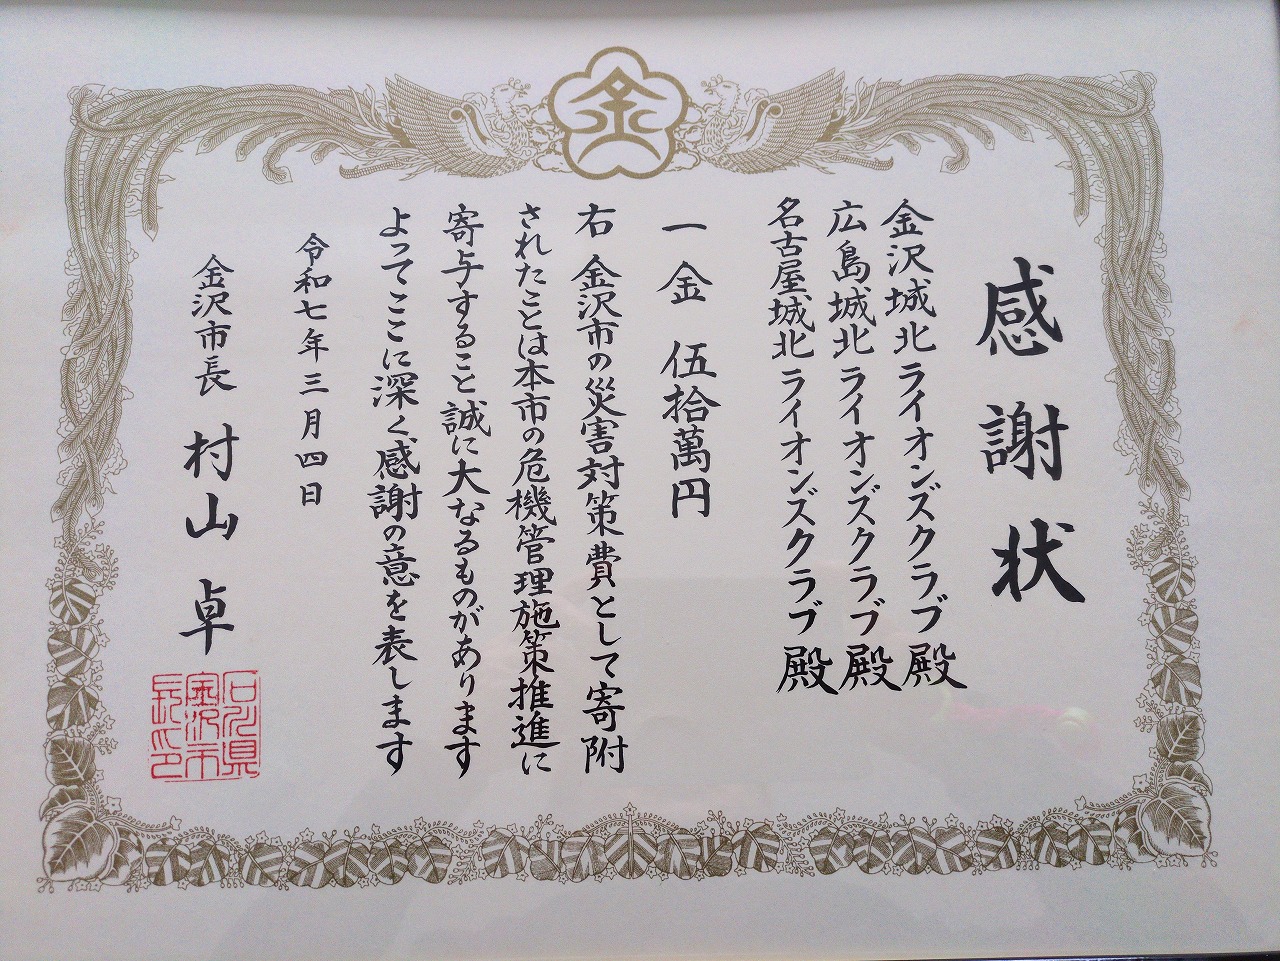 金
感謝状
金沢城北ライオンズクラブ殿
広島城北ライオンズクラブ殿
名古屋城北ライオンズクラブ殿
一金 伍拾萬円
右 金沢市の災害対策費として寄附
されたことは本市の危機管理施策推進に
寄与すること誠に大なるものがあります
よってここに深く感謝の意を表します
令和七年三月四日
金沢市長 村山卓
石川県
金沢市
長印